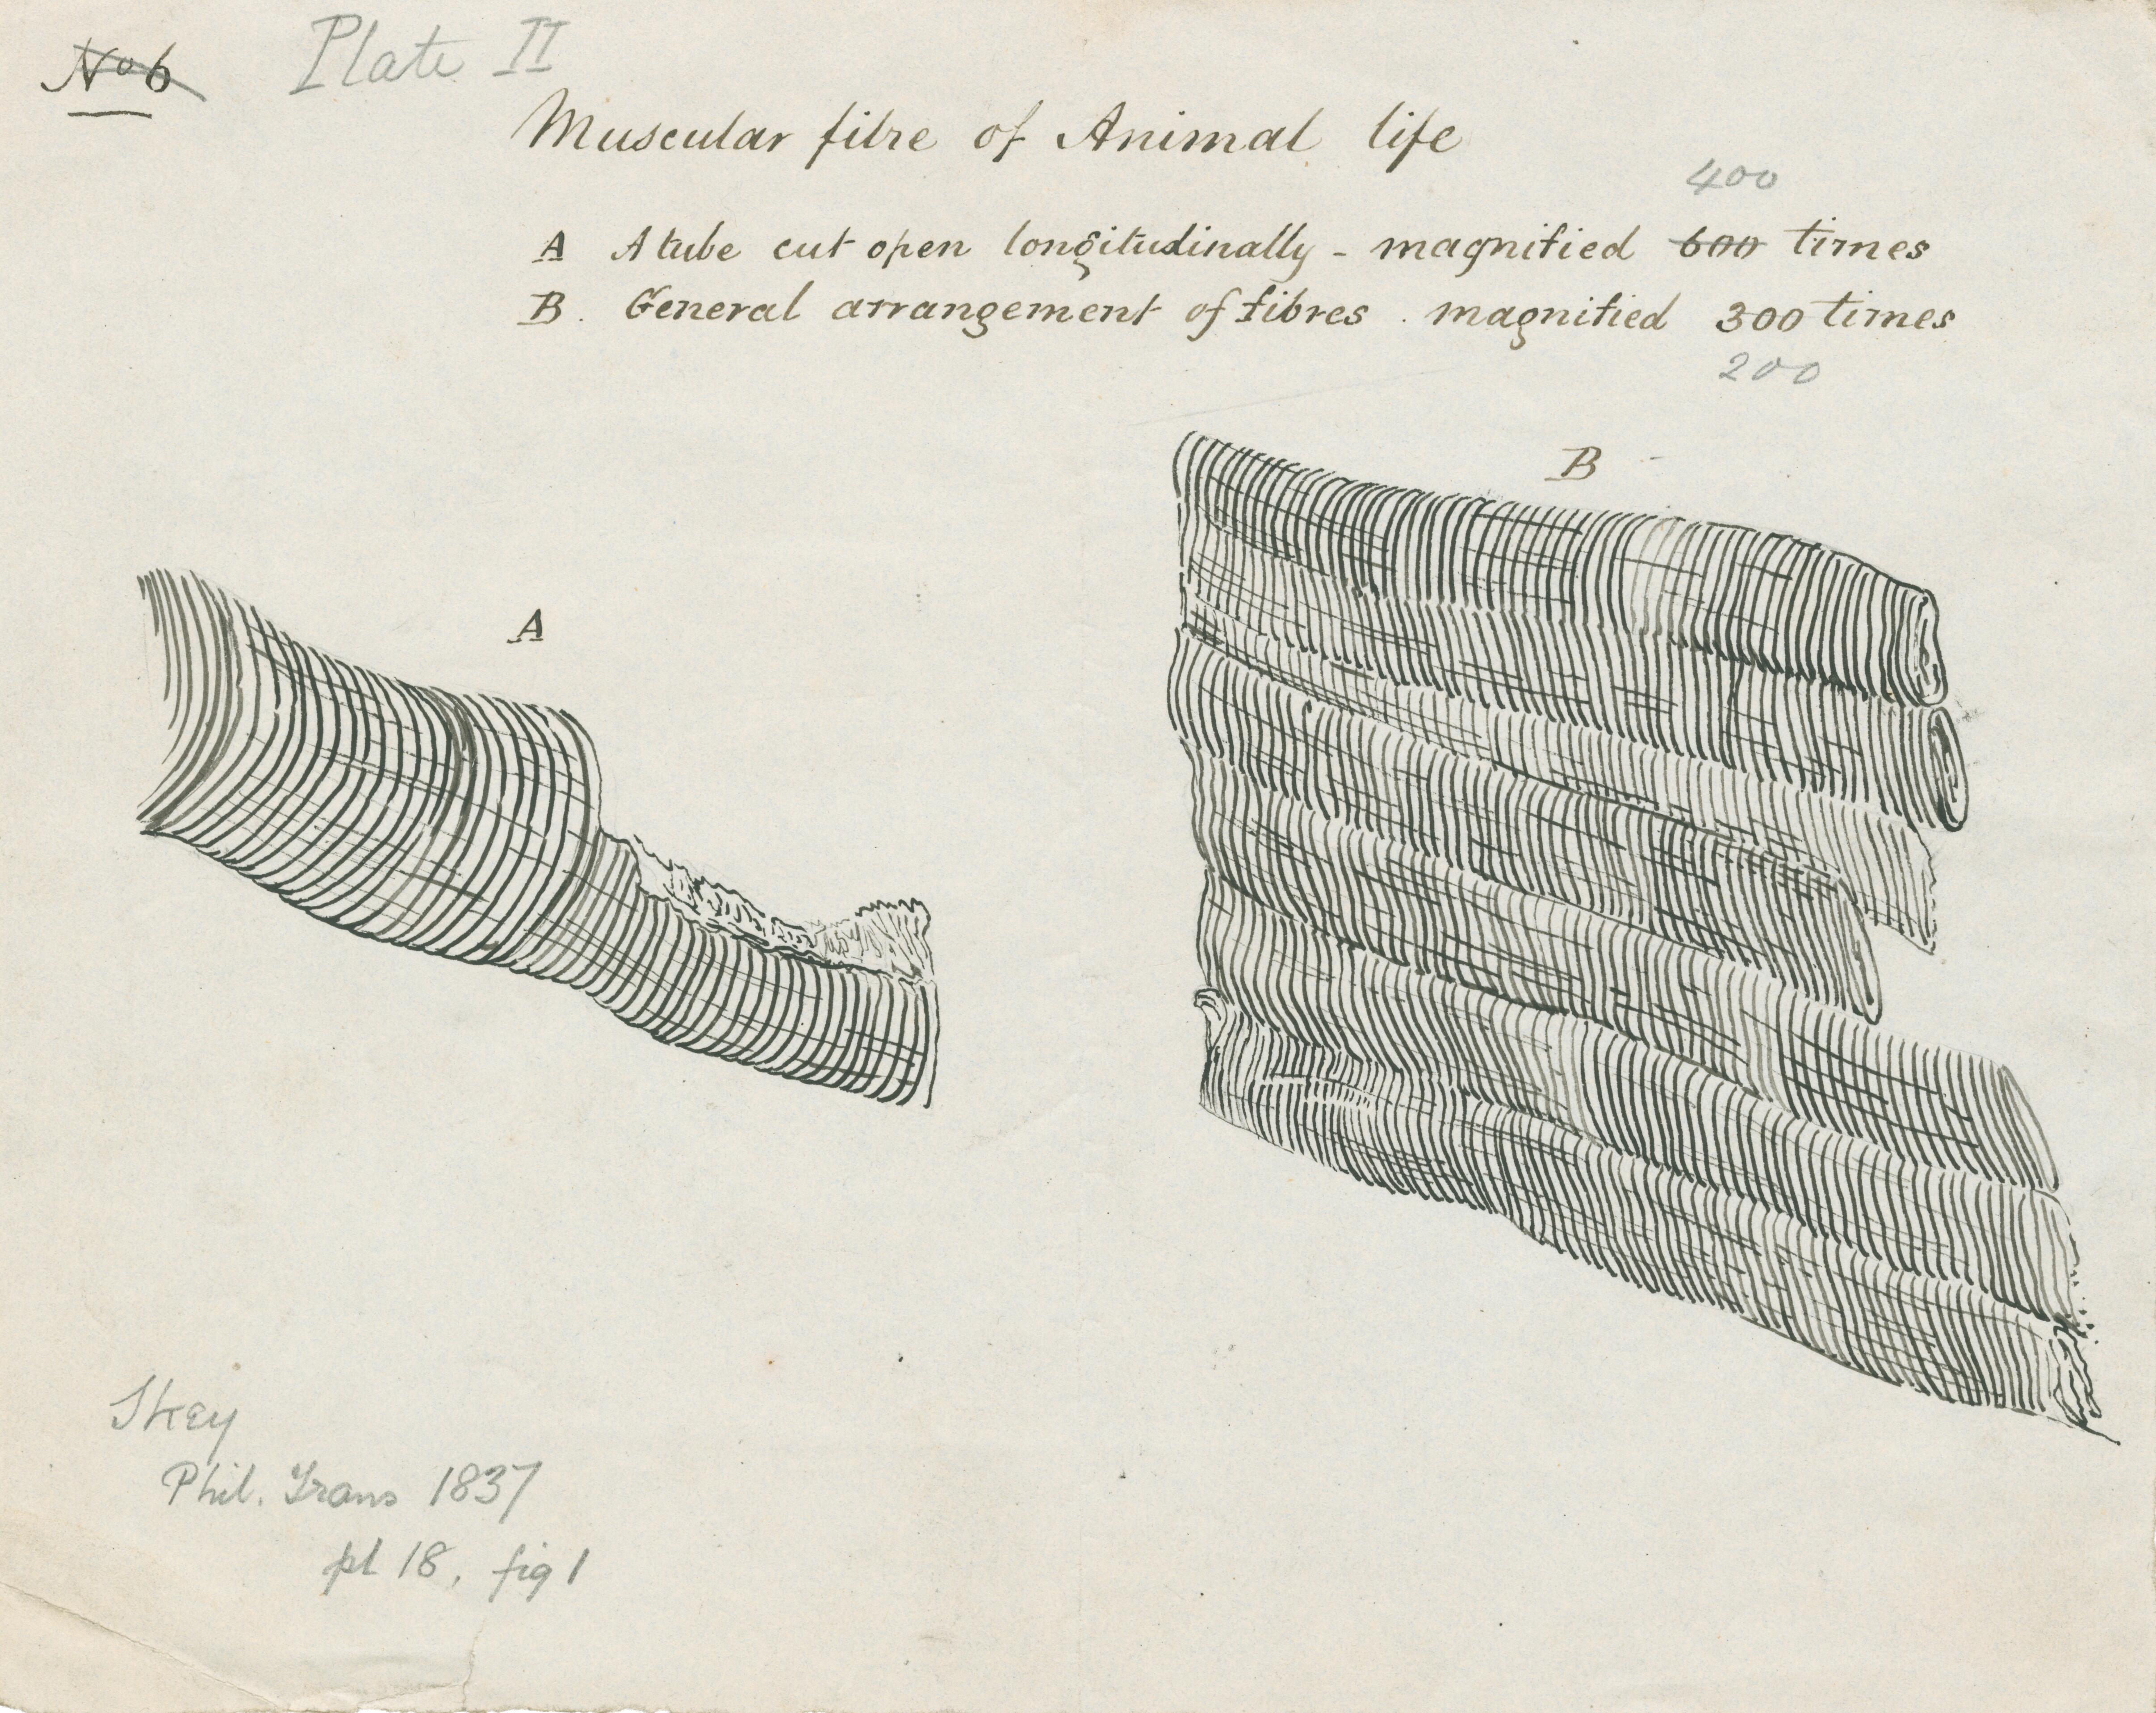 No 6 Plate II
Muscular fibre of Animal life
400
A A tube cut open longitudinally - magnified 600 times
B. General arrangement of fibres. magnified 300 times
200
B
A
Skey
Phil. Trans 1837
pl 18, fig 1